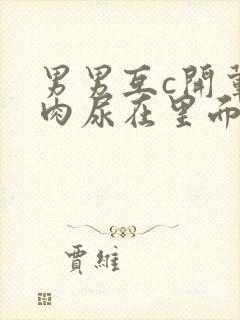 男男互c開車
肉尿在里而
賈維